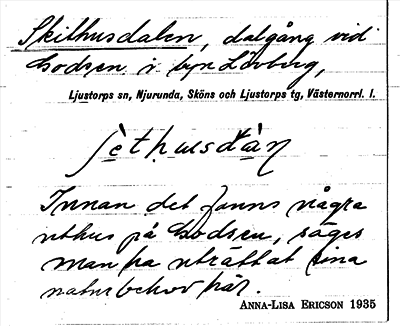 Skithusdalen, dalgång vid
Lodsen i byn Lövberg,
Ljustorps sn, Njurunda, Sköns och Ljustorps tg, Västernorrl. l.
Innan det fanns några
uthus på Lodsen, säges
man ha uträttat sina
naturbehov här.
ANNA-LISA ERICSON 1935